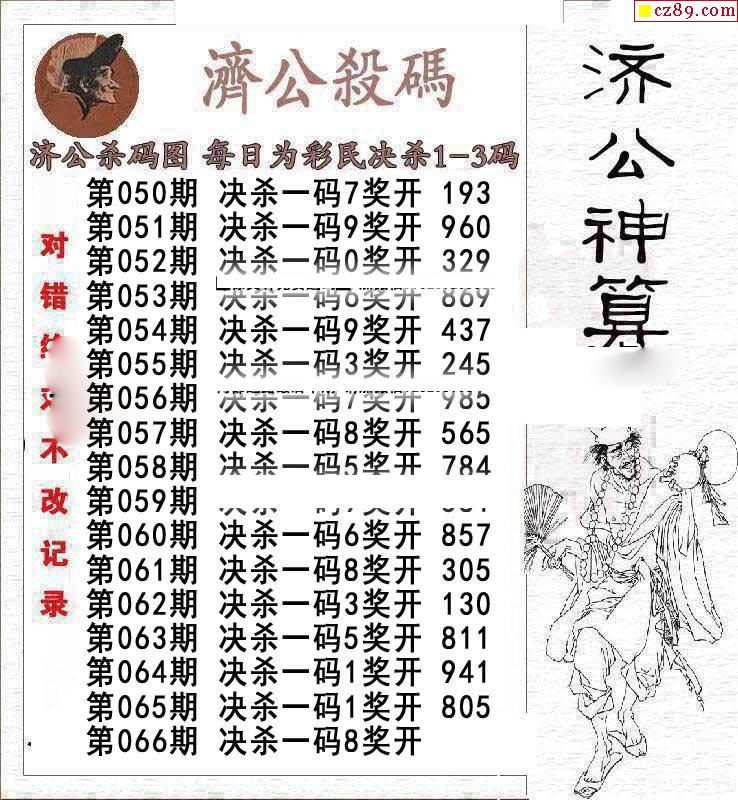 cz89.com
濟公殺碼
济公杀码图 每日为彩民决杀1-3码
第050期 决杀一码7奖开 193
第051期 决杀一码9奖开 960
第052期 决杀一码0奖开 329
第053期 决杀一码6奖开 869
第054期 决杀一码9奖开 437
第055期 决杀一码3奖开 245
第056期 决杀一码7奖开 985
第057期 决杀一码8奖开 565
第058期 决杀一码5奖开 784
第059期
第060期 决杀一码6奖开 857
第061期 决杀一码8奖开 305
第062期 决杀一码3奖开 130
第063期 决杀一码5奖开 811
第064期 决杀一码1奖开 941
第065期 决杀一码1奖开 805
第066期 决杀一码8奖开
对错
不改记录
济公神算